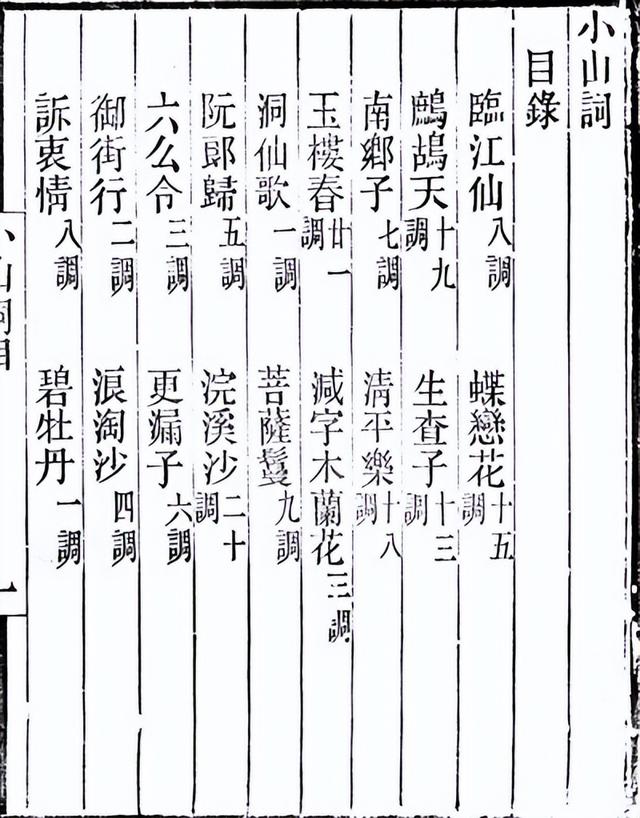 小山詞
目錄
臨江仙 八調 蝶戀花 十五調
鷓鴣天 十九調 生查子 十三調
南鄉子 七調 清平樂 十八調
玉樓春 廿一調 減字木蘭花 三調
洞仙歌 一調 菩薩鬘 九調
阮郎歸 五調 浣溪沙 二十調
六么令 三調 更漏子 六調
御街行 二調 浪淘沙 四調
訴衷情 八調 碧牡丹 一調
小山詞目 一